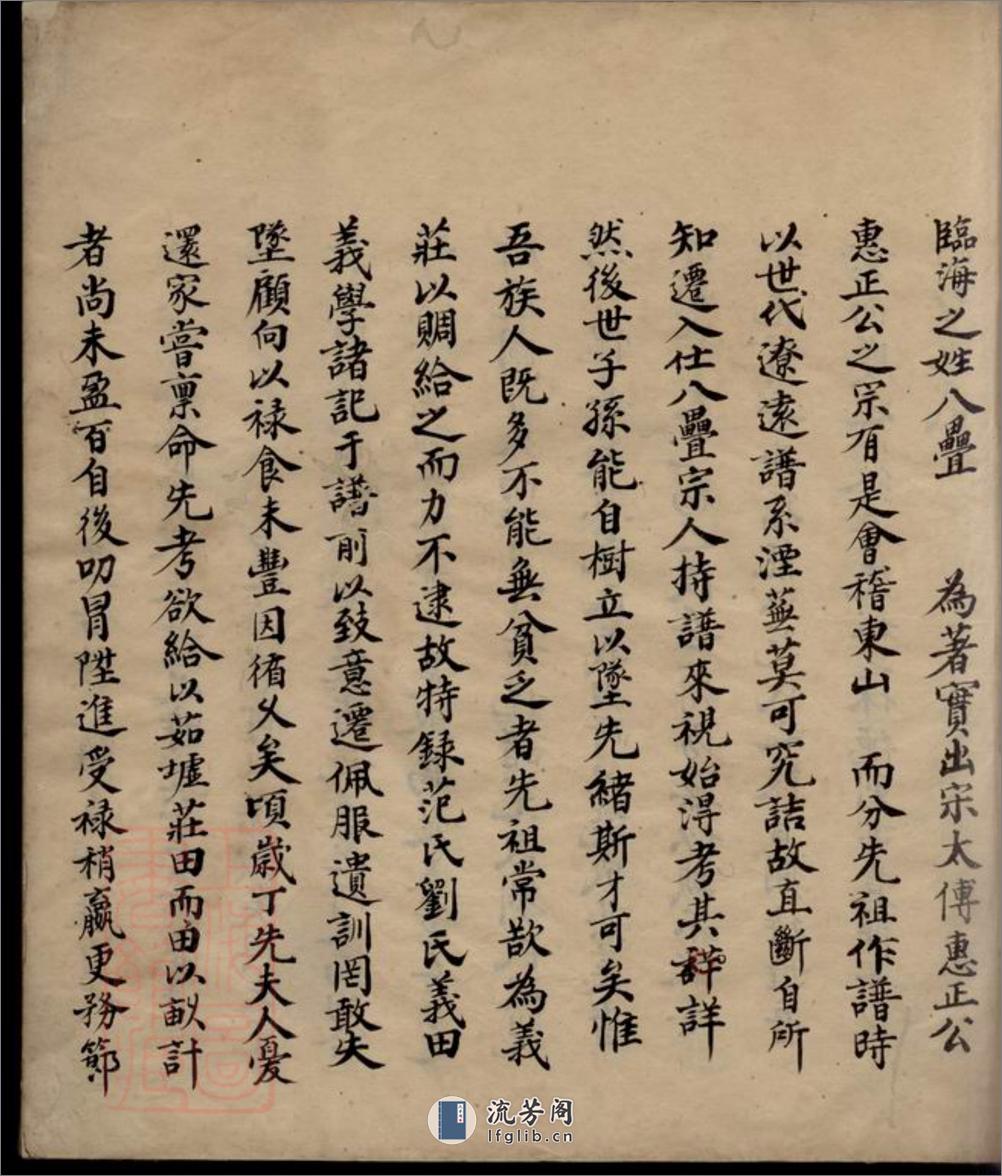 臨海之姓八疊　為著實出宋太傅惠正公
惠正公之宗有是會稽東山　而分先祖作譜時
以世代遼遠譜系湮蕪莫可究詰故直斷自所
知遷入仕八疊宗人持譜來視始得考其詳詳
然後世子孫能自樹立以墜先緒斯才可矣惟
吾族人既多不能無貧乏者先祖常欲為義
莊以賙給之而力不逮故特録范氏劉氏義田
義學諸記于譜前以致意遷佩服遺訓罔敢失
墜顧向以禄食未豐因循久矣頃歲丁先夫人憂
還家嘗稟命先考欲給以茹墟莊田而田以畝計
者尚未盈百自後叨冒陞進受禄稍贏更務節
流芳阁
lfglib.cn